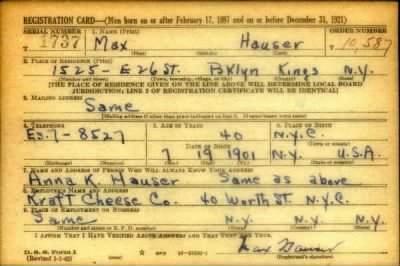 REGISTRATION CARD—(Men born on or after February 17, 1897 and on or before December 31, 1921)
SERIAL NUMBER 1. NAME (Print) ORDER NUMBER
1737 Max Hauser 10,587
(First) (Middle) (Last)
2. PLACE OF RESIDENCE (Print)
1525 - E 26 St. Bklyn Kings N.Y.
(Number and street) (Town, township, village, or city) (County) (State)
[THE PLACE OF RESIDENCE GIVEN ON THE LINE ABOVE WILL DETERMINE LOCAL BOARD
JURISDICTION; LINE 2 OF REGISTRATION CERTIFICATE WILL BE IDENTICAL]
3. MAILING ADDRESS
Same
[Mailing address if other than place indicated on line 2. If same insert word same]
4. TELEPHONE 5. AGE IN YEARS 6. PLACE OF BIRTH
Es. 7-8527 40 N.Y.C.
DATE OF BIRTH (Town or county)
7 19 1901 N.Y. U.S.A.
(Exchange) (Number) (Mo.) (Day) (Yr.) (State or country)
7. NAME AND ADDRESS OF PERSON WHO WILL ALWAYS KNOW YOUR ADDRESS
Anna K. Hauser Same as above
8. EMPLOYER'S NAME AND ADDRESS
Kraft Cheese Co. 40 Worth St. N.Y.C.
9. PLACE OF EMPLOYMENT OR BUSINESS
Same N.Y. N.Y. N.Y.
(Number and street or R. F. D. number) (Town) (County) (State)
I AFFIRM THAT I HAVE VERIFIED ABOVE ANSWERS AND THAT THEY ARE TRUE.
D. S. S. Form 1
(Revised 1-1-42) GPO 16—21630-1 Max Hauser